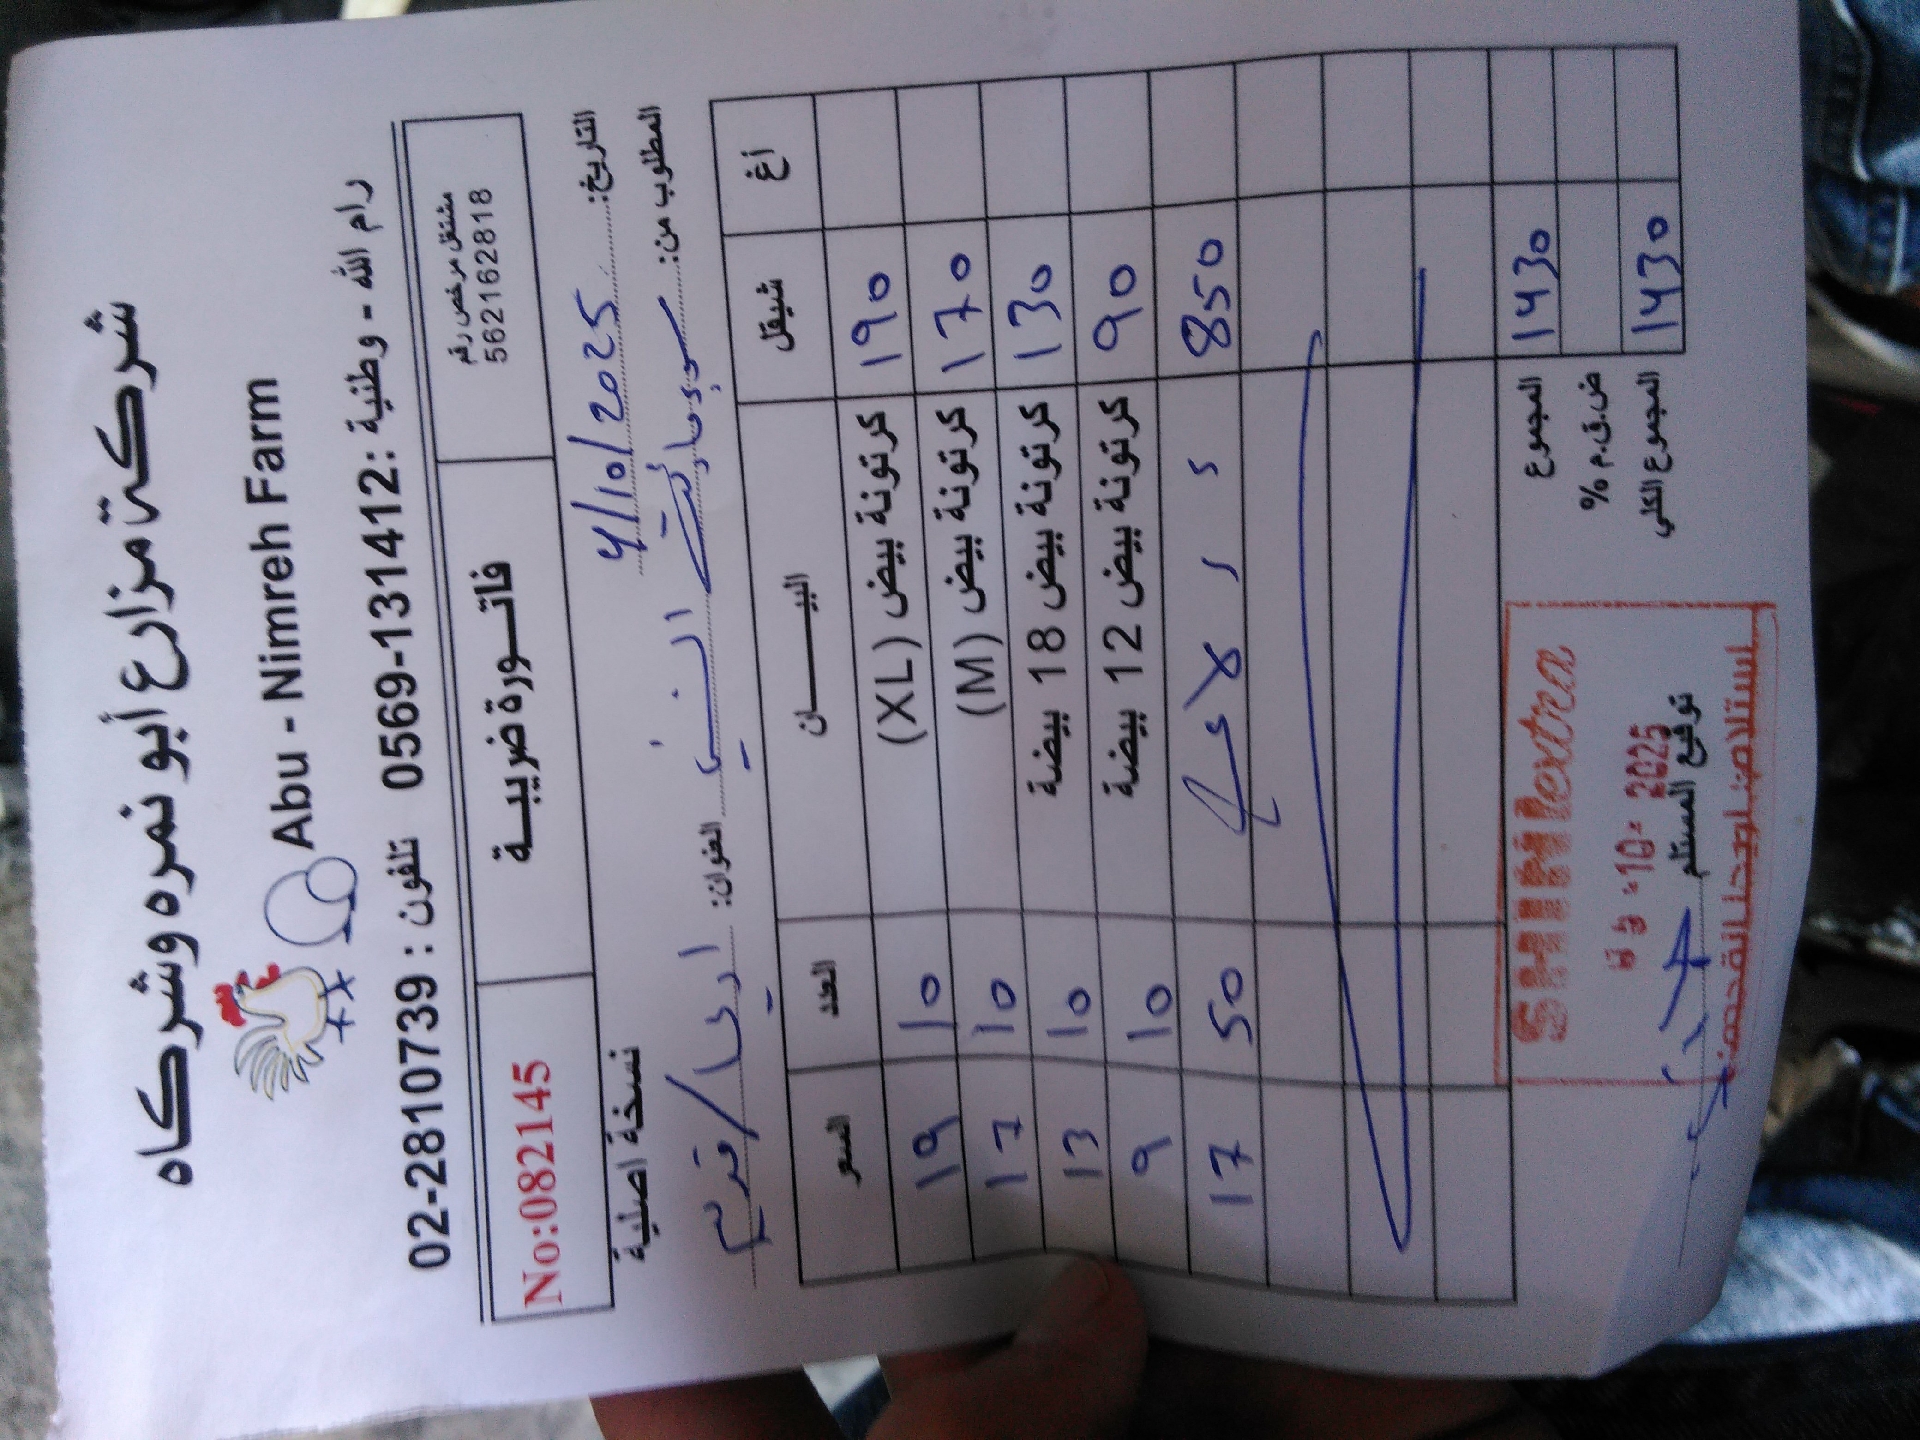 شركة مزارع أبو نمره وشركاه
Abu - Nimreh Farm
رام الله - وطنية : 0569-131412 تلفون : 02-2810739
مشتغل مرخص رقم
562162818
فاتـــورة ضريبيـــة
No:082145
التاريخ: 4/10/2025
نسخة اصلية
المطلوب من: سوبرماركت الشني العنوان: اريحا /
أغ شيقل البيــــــان العدد السعر
190 كرتونة بيض (XL) 10 19
170 كرتونة بيض (M) 10 17
130 كرتونة بيض 18 بيضة 10 13
90 كرتونة بيض 12 بيضة 10 9
850 50 17
المجموع 1430
ض.ق.م %
المجموع الكلي 1430
SHINI extra
-10- 2025
توقيع المستلم